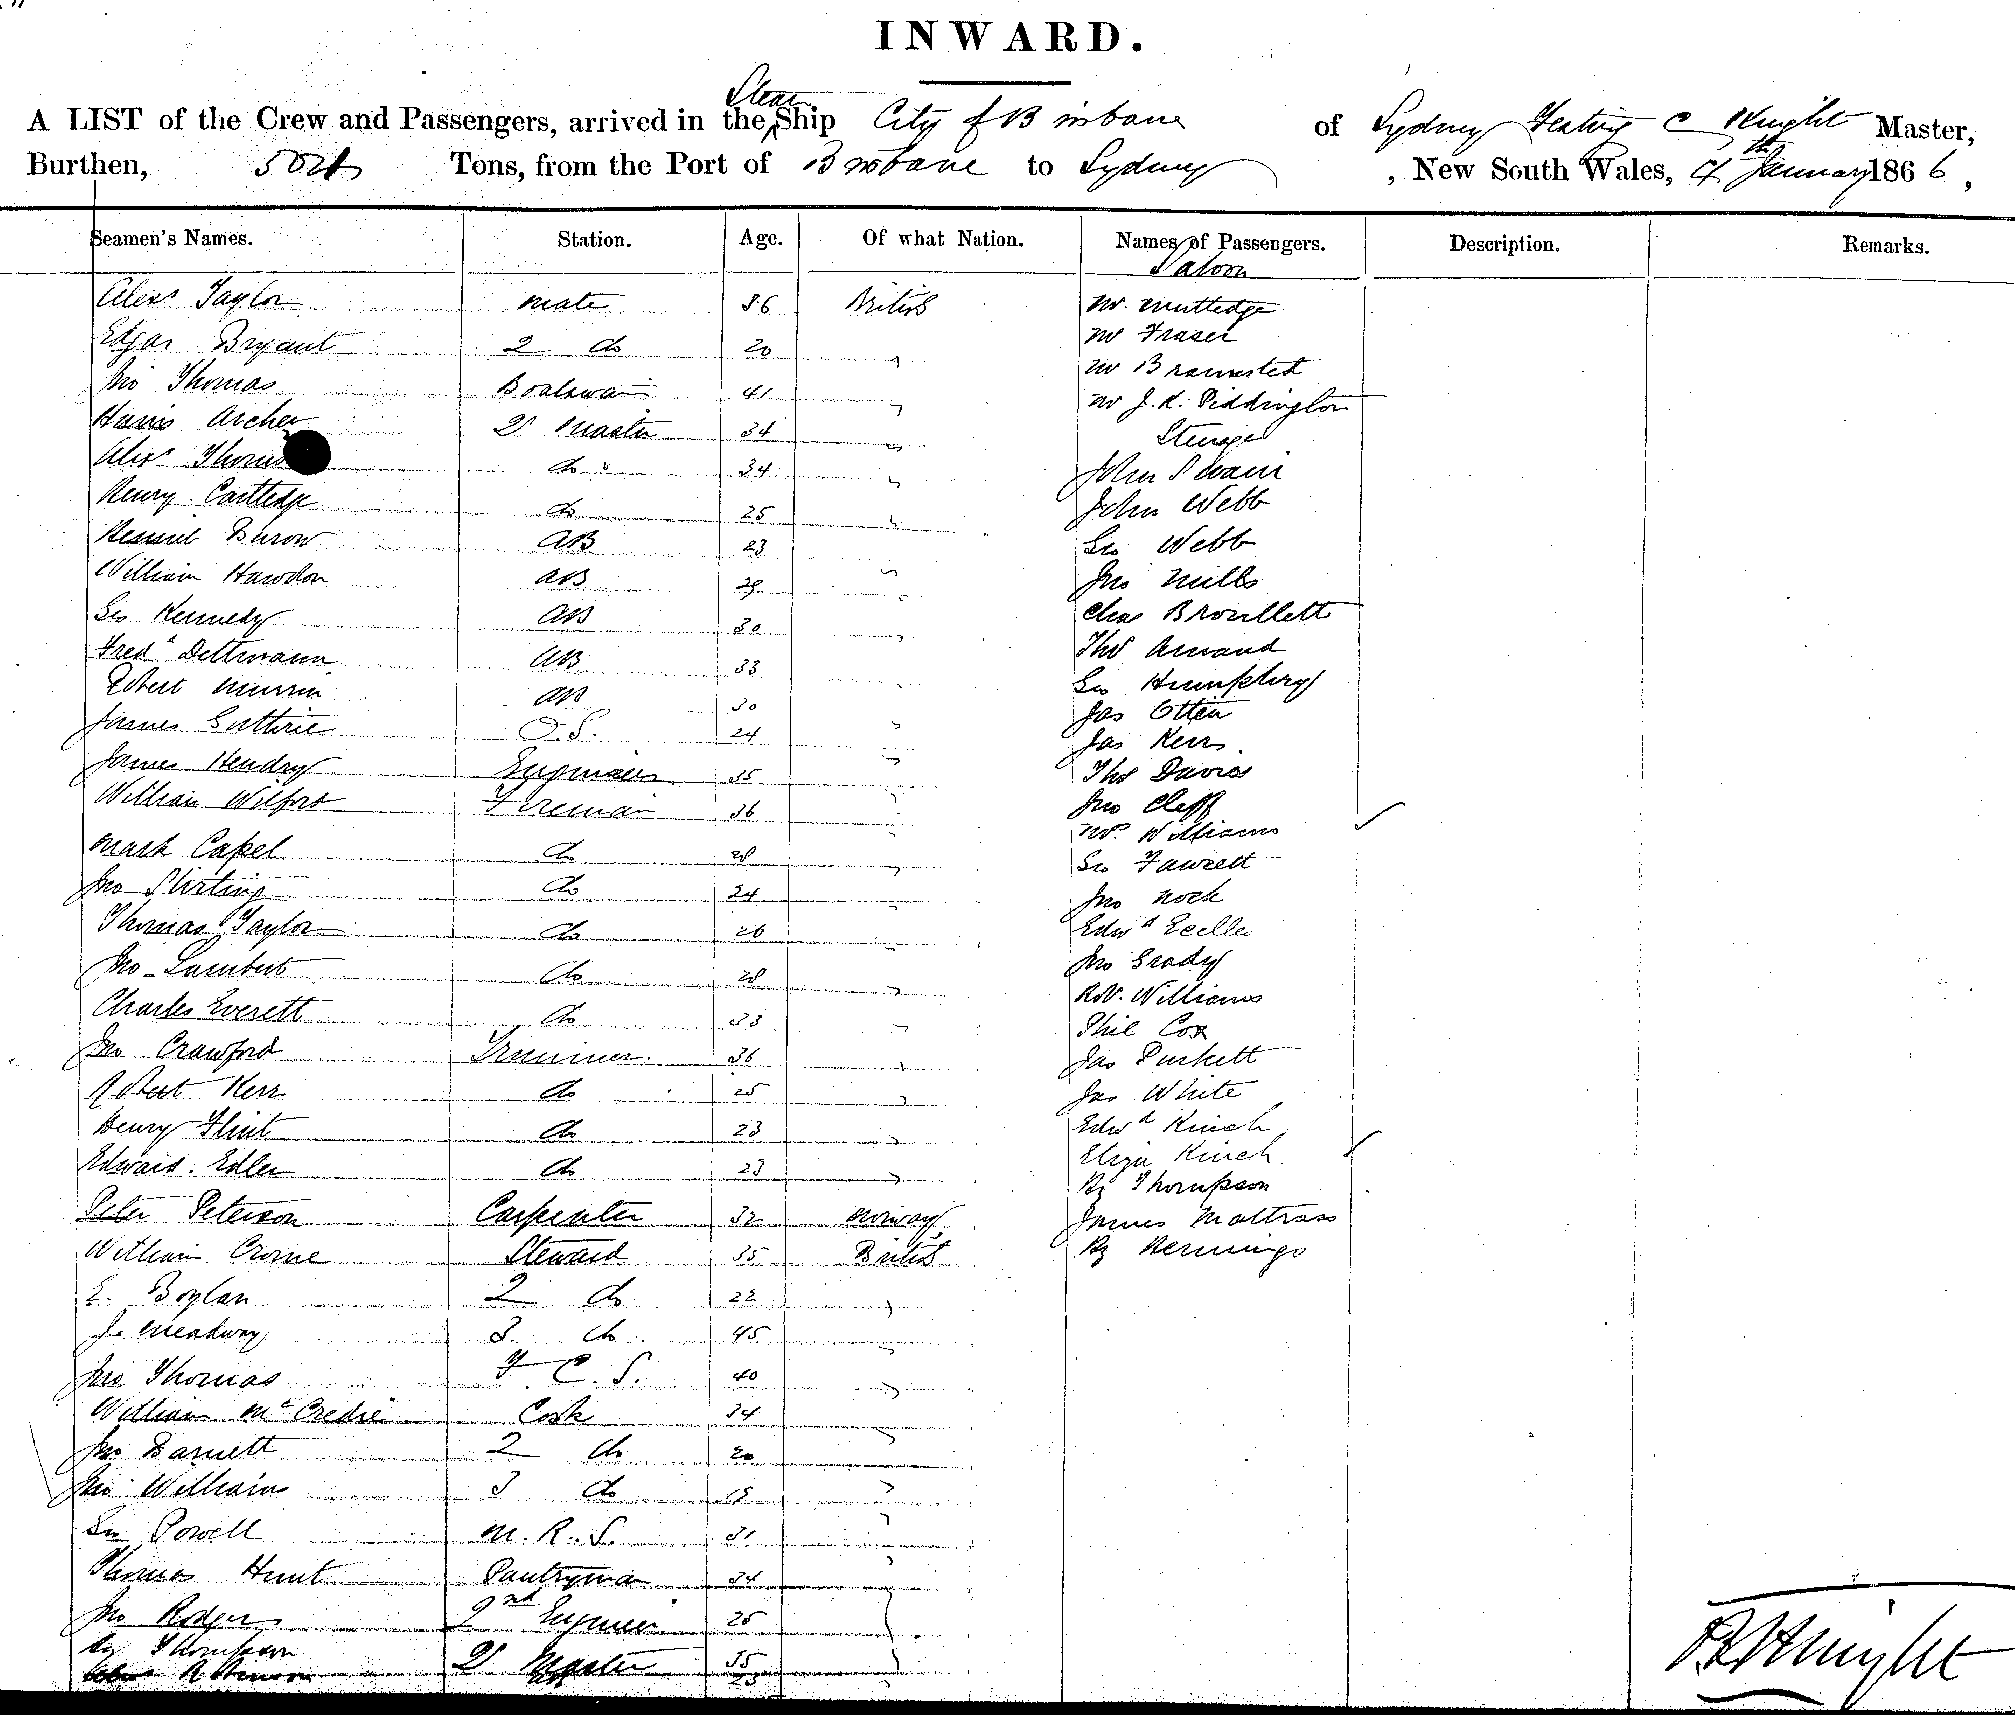 INWARD.
A LIST of the Crew and Passengers, arrived in the Steam Ship City of Brisbane of Sydney Knight Master,
Burthen, 504 Tons, from the Port of Brisbane to Sydney, New South Wales, 7th January 1866,
Seamen's Names. Station. Age. Of what Nation. Names of Passengers. Description. Remarks.
Saloon
Alexr Taylor mate 36 British Mr Rutledge
Edgar Bryant 2 do 20 " Mr Fraser
Jno Thomas Boatswain 41 " Mr Bramsted
Archer Qr Master 34 " Mr J. K. Piddington
Steerage
Alexr do 34 " John Swain
Henry Cartledge do 25 " John Webb
AB 23 " Geo Webb
William Hawdon AB " Jno Mills
Geo Kennedy AB 30 " Chas Broullett
Fredk Dettmann AB 33 Thos
Robert Murrin AB 30 Geo Humphery
James Guthrie O.S. 24 " Jas Otten
James Hendry Engineer 35 " Jas Kerr
William Wilford Fireman 36 " Thos Davies
Jno Cleff
Mark Capel do 28 " Mr Williams
Jno Stirling do 24 " Geo Fawcett
Thomas Taylor do 26 " Jno Nock
Jno Lambert do 28 " Edwd
Charles Everett do 33 " Jno Grady
Jno Crawford Trimmer 36 " Robt Williams
Robert Kerr do 25 " Phil Cox
Henry Flint do 23 " Jas Purkett
Edward Edler do 23 " Jas White
Peter Peterson Carpenter 32 Norway Edwd Kinch
William Steward 35 British Eliza Kinch
E. Boylan 2 do 22 " Hy Thompson
J. Meadway 3 do 45 " James Mattrass
Jno Thomas F. C. S. 40 " Hy Hemmings
William McCredie Cook 34 "
Jno Barnett 2 do 20 "
Jno Williams 3 do 18 "
Geo Powell M. R. S. 31 "
Thomas Hunt Pantryman 34 "
Jno Rodger 2nd Engineer 25 "
Hy Thompson Qr Master 35 "
Knight